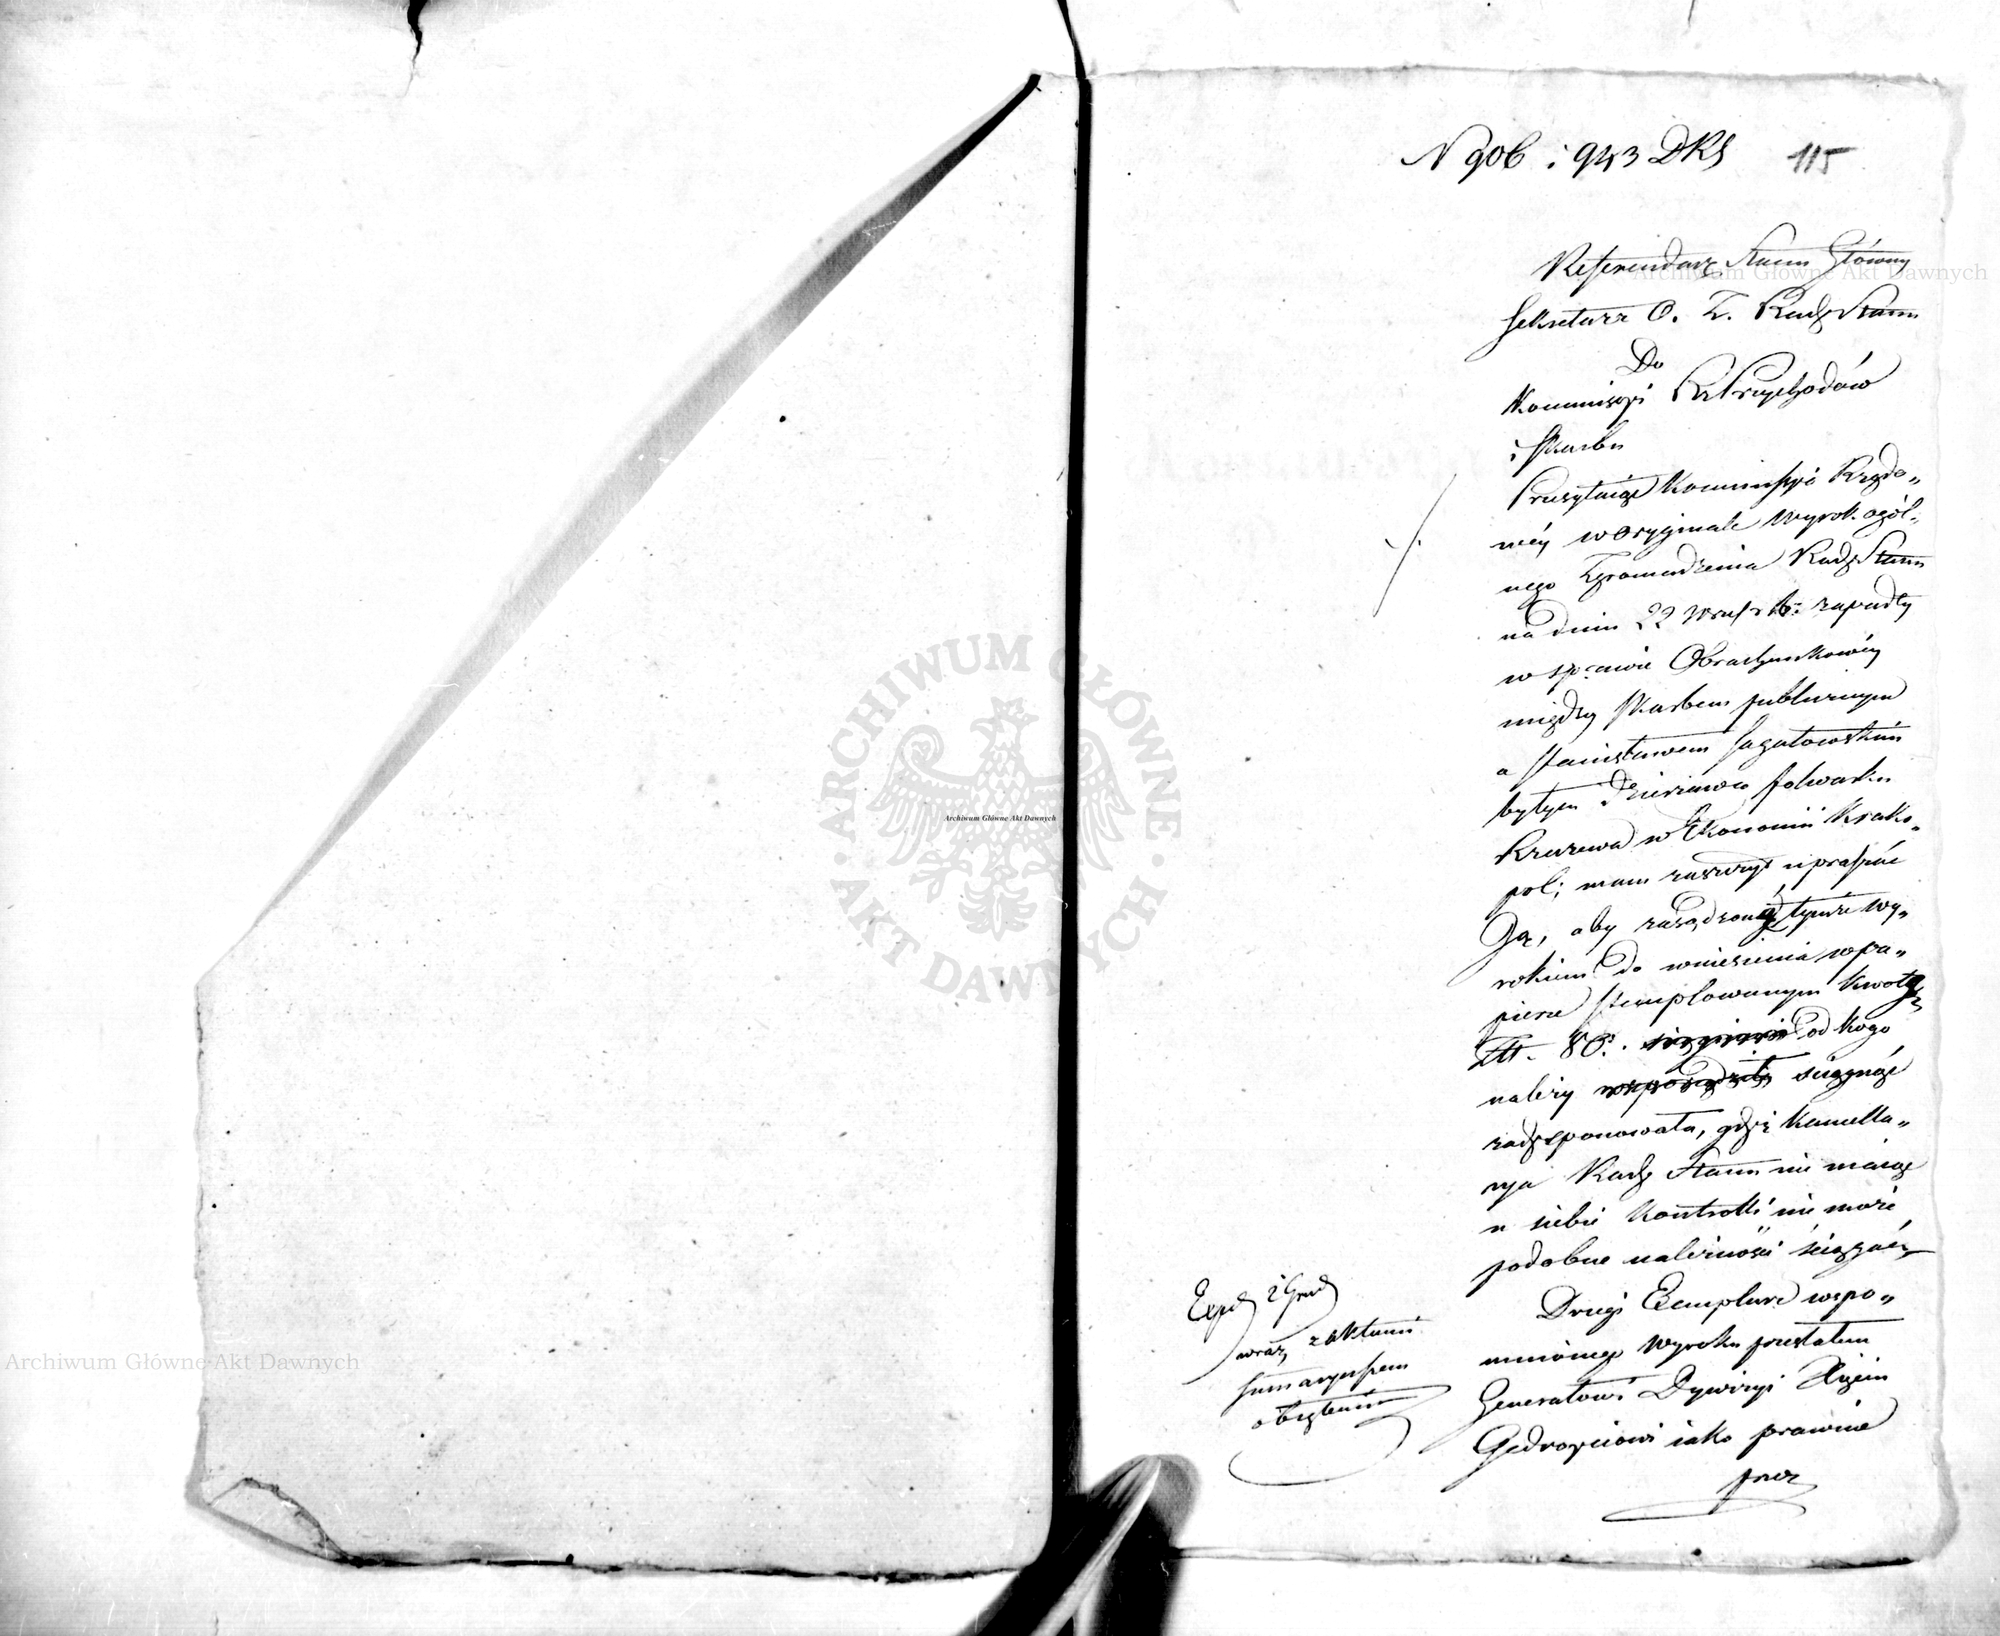 N 906 i 943 DKS 115
Referendarz Stanu Główny
Sekretarz O. Z. Rady Stanu
Do
Kommissyi R Przychodów
i Skarbu
Przesyłaiąc Kommissyi Rządo„
wéy w oryginale wyrok ogól„
nego Zgromadzenia Rady Stanu
na dniu 22 zapadły
w sprawie Obrachunkowéy
między Skarbem publicznym
a Stanisławem
byłym Dzierżawcą folwarku
w Ekonomii Krako„
pol; mam zaszczyt upraszać
Ją, aby zasądzoną tymże wy„
rokiem do wniesienia w pa„
pierze stemplowanym kwotę
Złł. 80. od kogo
należy ściągnąć
zadysponowała, gdyż Kancella„
rya Rady Stanu nie maiąc
u siebie Kontrolli nie może
podobne należności ściągać,
Drugi Exemplarz wspo„
mnionego wyroku przesłałem
Generałowi Dywizyi Xięciu
Giedroyciowi iako prawnie
przez
Exped 2 Grud
wraz z aktami
sumaryuszem
obiętemi
ARCHIWUM GŁÓWNE AKT DAWNYCH
Archiwum Główne Akt Dawnych
Archiwum Główne Akt Dawnych
Archiwum Główne Akt Dawnych